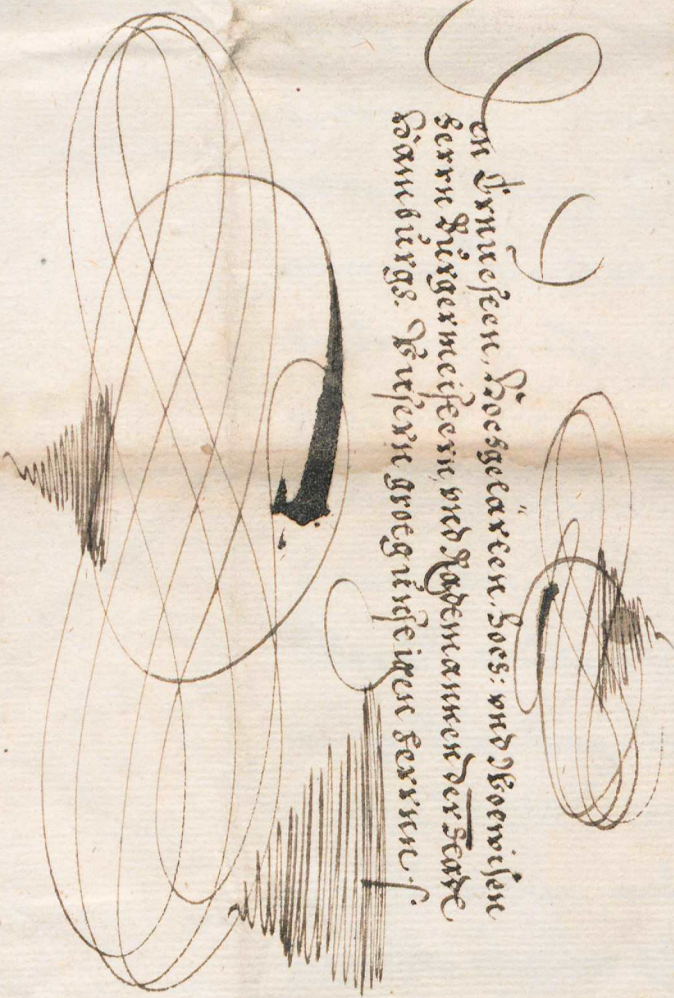 Den Ernuesten, Hochgelärten, Hoch: vnd Wolwisen
Herrn Bürgermeistern, vnd Rademannen der Stadt
Hamburgs. Vnsern grotgünstigen Herrnn.